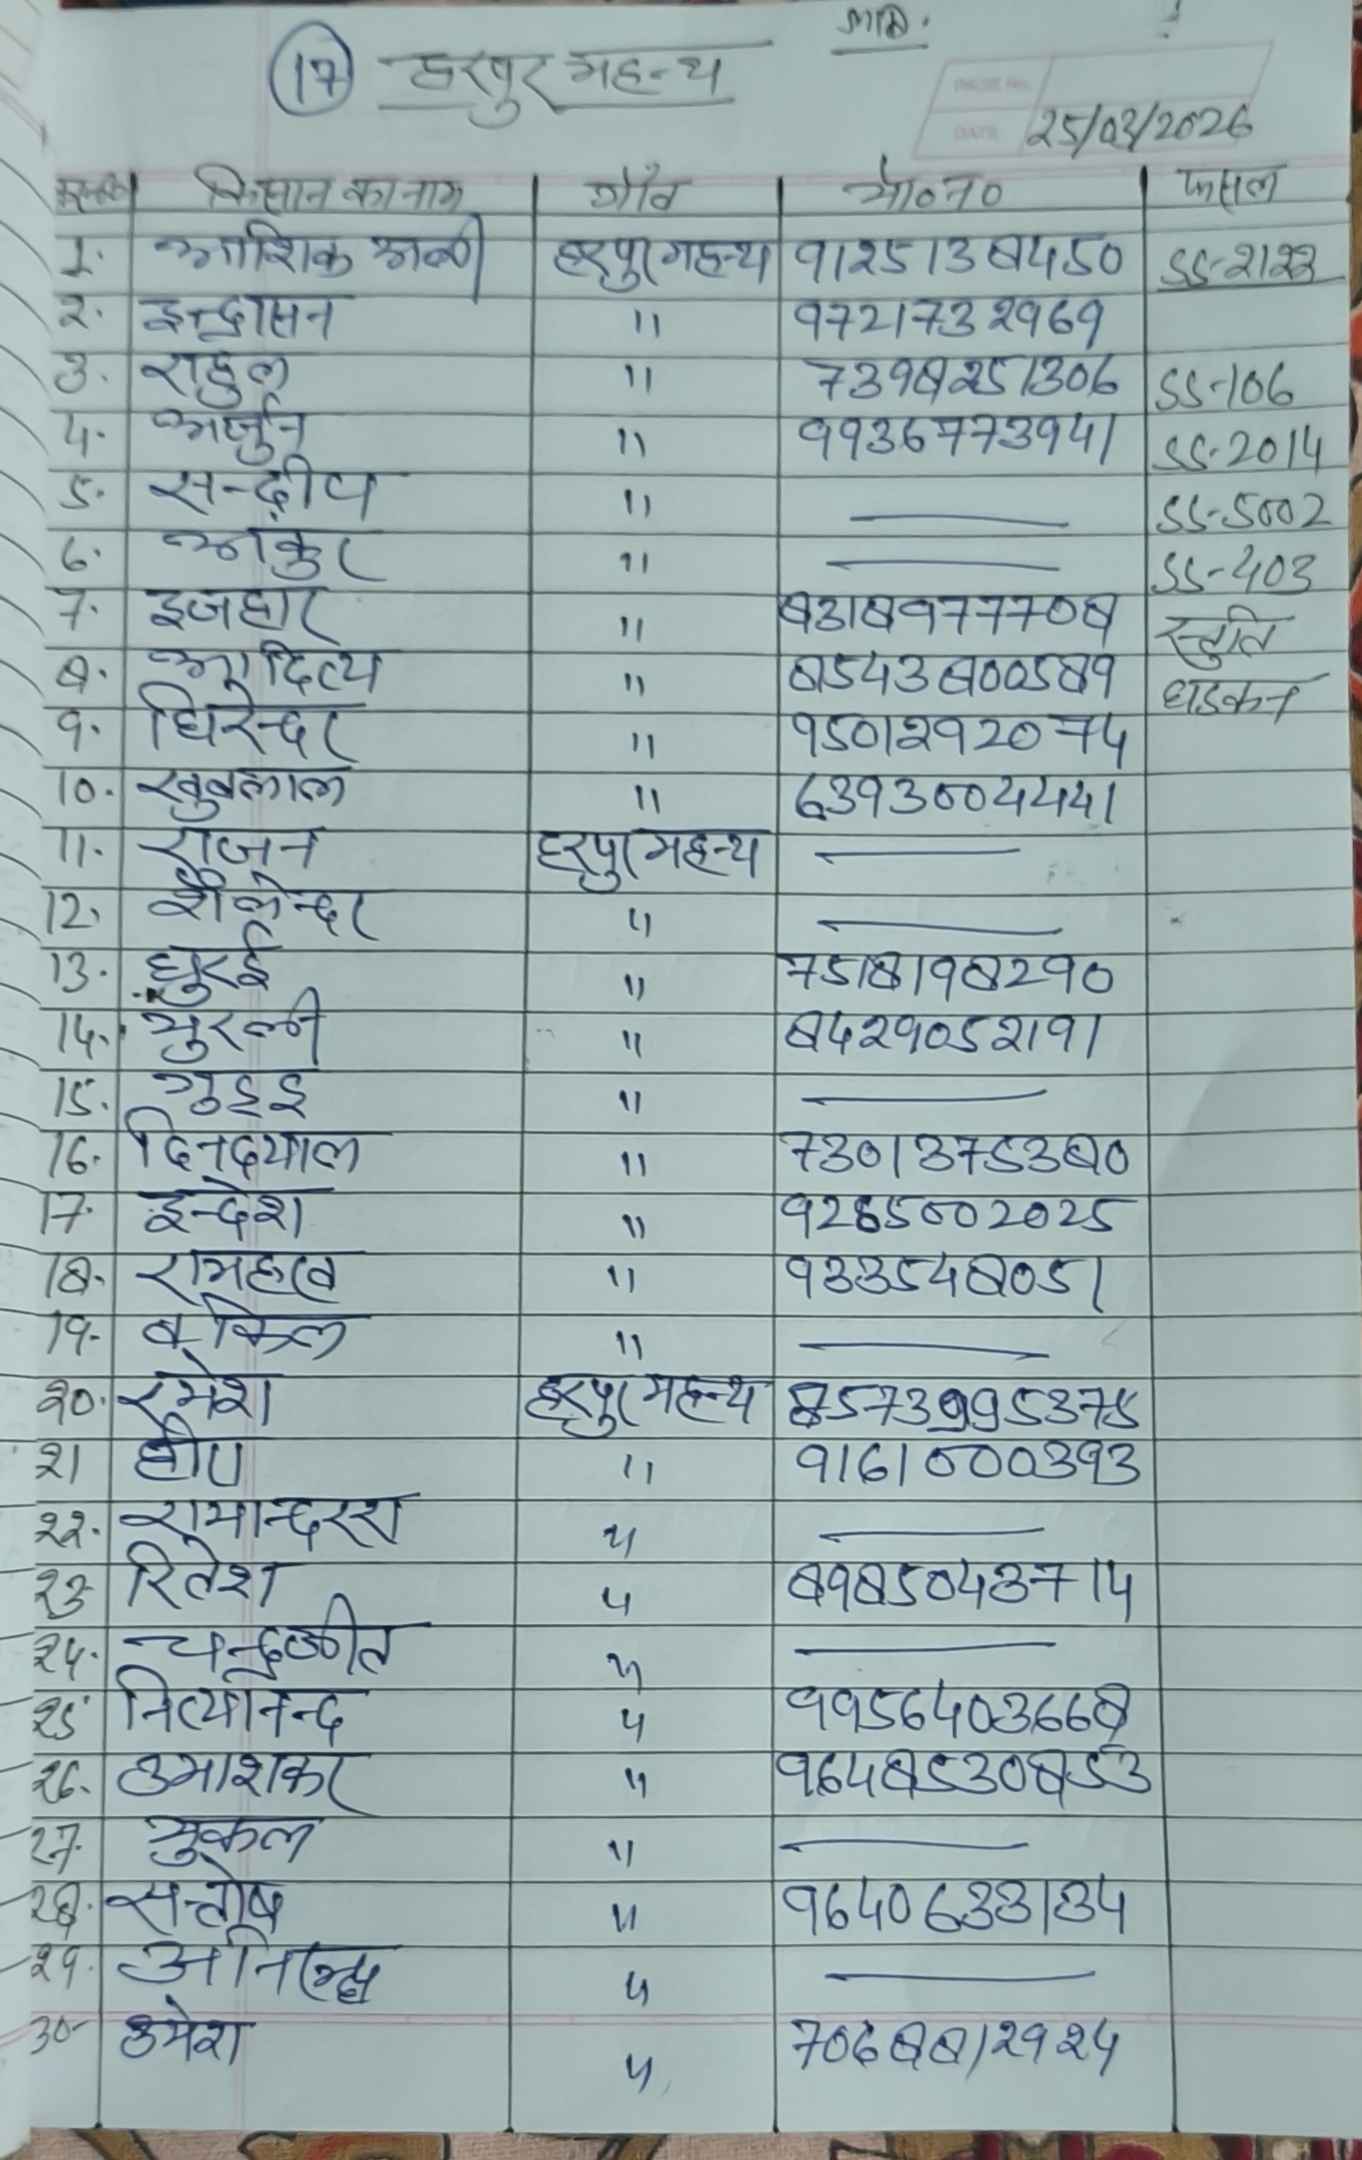 (17) हरपुर महन्थ
25/03/2026
किसान का नाम गाँव मो०न० फसल
1. आशिक अली हरपुर महन्थ 9125138450 SS-2123
2. इन्द्रासन " 9721732969
3. राहुल " 7398251306 SS-106
4. अर्जुन " 9936773941 SS-2014
5. सन्दीप " — SS-5002
6. अंकुर " — SS-403
7. इजहार " 8318977708 स्तुति
8. आदित्य " 8543800589 धडकन
9. धिरेन्दर " 9501292074
10. खुबलाल " 6393004441
11. राजन हरपुर महन्थ —
12. शैलेन्दर " —
13. घुरई " 7518198290
14. मुरली " 8429052191
15. " —
16. दिनदयाल " 7301375380
17. इन्देश " 9265002025
18. " 933548051
19. वकिल " —
20. रमेश हरपुर महन्थ 8573995375
21 " 9161000393
22. " —
23. रितेश " 8985043714
24. चन्द्रजीत " —
25 नित्यानन्द " 9956403668
26. उमाशंकर " 9648530853
27. मुकल " —
28. सन्तोष " 9640633134
29. " —
30- उमेश " 7068812924